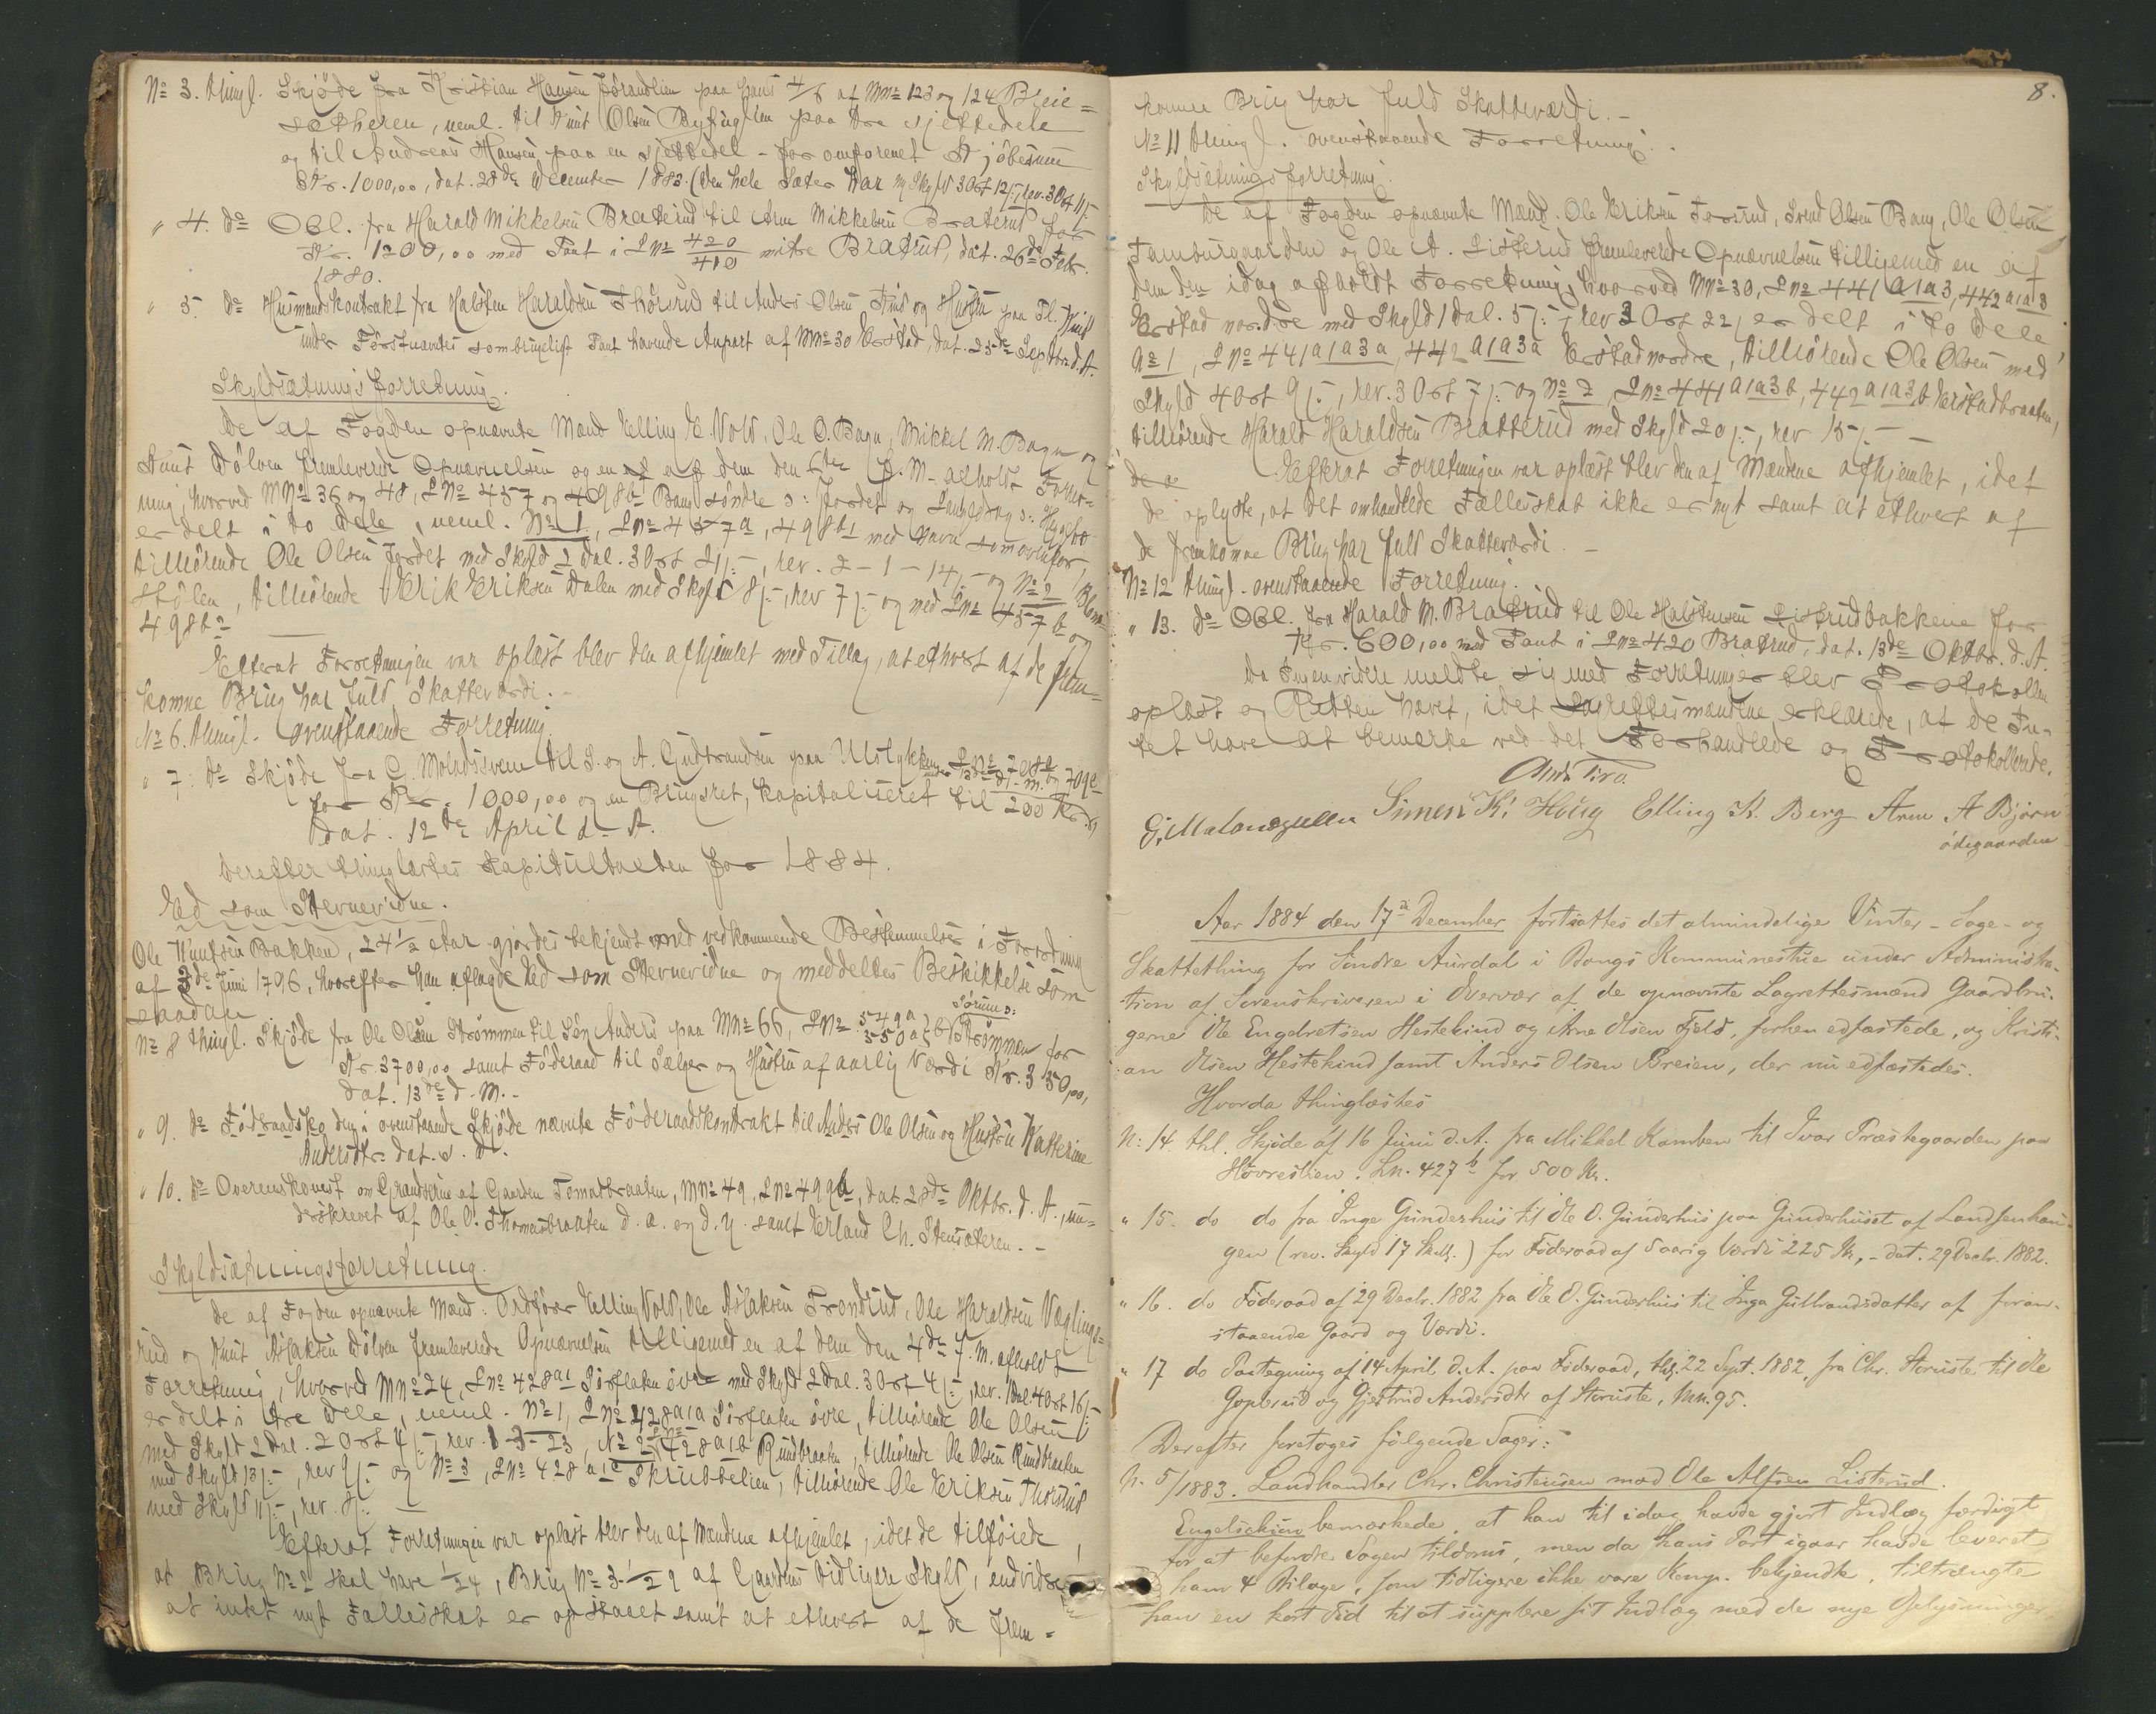 No 3. thingl. Skjöde fra Kristian Hansen Jörandlien paa hans 4/6 af MNo 123 og 124 Breie=
sætheren, neml. til Knut Olsen Byfuglien paa tre sjettedele
og til Andreas Hansen paa en sjettedel - for omforenet Kjöbesum
Kr. 1000,00, dat. 28de December 1883. (Den hele Sæter har ny Skyld 3 Ort 12 /:, rev. 3 Ort 11 /:
" 4. do Obl. fra Harald Mikkelsen Braterud til Arne Mikkelsen Braterud for
Kr. 1200,00 med Pant i LNo 420/410 mitre Bratrud, dat. 26de Febr.
1880.
" 5. do Husmandskontrakt fra Halsten Haraldsen Thorsrud til Anders Olsen og Hustru paa Pl.
under Förstnævntes sombrugeligt Pant havende Anpart af MNo 30 Erstad, dat. 25de Septbr. d. A.
Skyldsætningsforretning.
De af Fogden opnævnte Mænd Elling E. Vold, Ole O. Bagn, Mikkel M. Bagn og
Knut Dölven fremleverede Opnævnelsen og en af dem den 6te d. M. afholdt Forret=
ning, hvorved MNo 36 og 48, LNo 457 og 498b Bang söndre o: Jordet og
er delt i to Dele, neml. No 1, LNo 457a, 498b1 med Navn somovenfor,
tilhörende Ole Olsen Jordet med Skyld 2 Dal. 3 Ort 21 /:, rev. 2 - 1 - 14 /: og No 2
stölen, tilhörende Erik Eriksen Dalen med Skyld 8 /:, rev 7 /: og med LNo 457b og
498b2
Efterat Forretningen var oplæst blev den afhjemlet med Tillæg, at ethvert af de frem=
komne Brug har fuld Skatteværdi. -
No 6. thingl. ovenstaaende Forretning
" 7. do Skjöde fra G. Moladssveen til S. og A. Gudbrandsen paa Ulstykken LNo 708b og 709c
for Kr. 1000,00 og en Brugsret, kapitaliseret til 200 Kr.
dat. 12te April d. A.
Derefter thinglæstes Kapitultaxten for 1884.
Ed som Stevnevidne.
Ole Knutsen Bakken, 24 1/2 Aar gjordes bekjendt med vedkommende Bestemmelser i Forordning
af 3de Juni 1796, hvorefter han aflagde Ed som Stevnevidne og meddeltes Beskikkelse som
saadan
No 8 thingl. Skjöde fra Ole Olsen Strömmen til Sön Anders paa MNo 66, LNo 549a, 550a Sörum o: Strömmen for
Kr. 3700,00 samt Föderaad til Sælger og Hustru af aarlig Værdi Kr. 350,00,
dat. 13de d. M. -
" 9. do Föderaadsko den i ovenstaaende Skjöde nævnte Föderaadskontrakt til Anders Ole Olsen og Hustru Katterine
Andersdtr. dat. s. D.
" 10. do Overenskomst om Grændserne af Gaarden Tomasbraaten, MNo 49, LNo 499b, dat. 28de Oktbr. d. A., un=
derskrevet af Ole O. Thomasbraaten d. æ. og d. y. samt Erland Ch. Stensæteren. -
Skyldsætningsforretning.
De af Fogden opnævnte Mænd: Ordförer Elling Vold, Ole Aslaksen Frondrud, Ole Haraldsen Væglings=
rud og Knut Aslaksen Dölven fremleverede Opnævnelsen tilligemed en af dem den 4de f. M. afholdt
Forretning, hvorved MNo 24, LNo 428a1 Sörflaten övre med Skyld 2 Dal. 3 Ort 4 /:, rev. 1 Dal. 4 Ort 16 /:
er delt i tre Dele, neml. No 1, LNo 428a1a Sörflaten övre, tilhörende Ole Olsen
med Skyld 2 Dal. 2 Ort 4 /:, rev. 1-3-23, No 2 LNo 428a1b Rundbraaten, tilhörende Ole Olsen Rundbraaten
med Skyld 13 /:, rev 9 /: og No 3, LNo 428a1c Skrubbelien, tilhörende Ole Eriksen Thorsrud
med Skyld 11 /:, rev. 8 /:
Efterat Forretningen var oplæst blev den af Mændene afhjemlet, idet de tilföiede,
at Brug No 2 skal have 1/24, Brug No 3 1/29 af Gaardens tidligere Skyld, endvidere
at intet nyt Fællesskab er opstaaet samt at ethvert af de frem=
8.
komne Brug har fuld Skatteværdi. -
No 11 thingl. ovenstaaende Forretning.
Skyldsætningsforretning.
De af Fogden opnævnte Mænd: Ole Eriksen Forsrud, Svend Olsen Bang, Ole Olsen
Tamburgaarden og Ole A. Listerud fremleverede Opnævnelsen tilligemed en af
dem den idag afholdt Forretning, hvorved MNo 30, LNo 441a1a3, 442a1a3
Erstad nordre med Skyld 1 Dal. 5 /:, rev 3 Ort 22 / er delt i to Dele,
No 1, LNo 441a1a3a, 442a1a3a Erstad nordre, tilhörende Ole Olsen med
Skyld 4 Ort 9 /:, rev. 3 Ort 7 /: og No 2, LNo 441a1a3b, 442a1a3b Erstadbraaten,
tilhörende Harald Haraldsen Bratterud med Skyld 20 /:, rev 15 /: -
Efterat Forretningen var oplæst blev den af Mændene afhjemlet, idet
de oplyste, at det omhandlede Fællesskab ikke er nyt samt at ethvert af
de fremkomne Brug har fuld Skatteværdi. -
No 12 thingl. ovenstaaende Forretning.
" 13. do Obl. fra Harald M. Bratrud til Ole Halstensen Listrudbakkene for
Kr. 600,00 med Pant i LNo 420 Bratrud, dat. 13de Oktbr. d. A.
Da Ingen videre meldte sig med Forretninger blev Protokollen
oplæst og Retten hævet, idet Lagrettesmændene erklærede, at de In=
tet have at bemerke ved det Forhandlede og Protokollerede.
Simen K. Houg Elling K. Berg Arne A Bjørn
ödegaarden
Aar 1884 den 17de December fortsattes det almindelige Vinter-Sage- og
Skattething for Söndre Aurdal i Bangs Kommunestue under Administra-
tion af Sorenskriveren i Overvær af de opnævnte Lagrettesmænd Gaardbru-
gerne Ole Engebretsen Hestekind og Arne Olsen Fjeld, forhen edfæstede, og Kristi-
an Olsen Hestekind samt Anders Olsen Breien, der nu edfæstedes.
Hvorda thinglæstes
N: 14. thl. Skjøde af 16 Juni d. A. fra Mikkel Kamben til Ivar Præstegaarden paa
Hövreslien. Ln. 427b for 500 Kr.
" 15. do do fra Inge Gunderhus til Ole O. Gunderhus paa Gunderhuset af Landsenhau-
gen (rev. Skyld 17 Skill.) for Föderaad af 5aarig Værdi 225 Kr, - dat. 29 Decbr. 1882.
" 16. do Föderaad af 29 Decbr. 1882 fra Ole O. Gunderhus til Inga Gulbrandsdatter af foran-
staaende Gaard og Værdi.
" 17 do Paategning af 14 April d. A. paa Föderaad, thg. 22 Sept. 1882, fra Chr. Storuste til Ole
Goplerud og Gjertrud Andersdtr af Storuste, Mn. 95.
Derefter foretoges fölgende Sager:
N. 5/1883. Landhandler Chr. Christensen mod Ole Alfsen Listerud.
Engelschjøn bemærkede, at han til idag havde gjort Indlæg færdigt
for at befordre Sagen tildoms, men da hans Part igaar havde leveret
ham 4 Bilage, som tidligere ikke vare Komp. bekjendte, tiltrængte
han en kort Tid til at supplere sit Indlæg med de nye Oplysninger